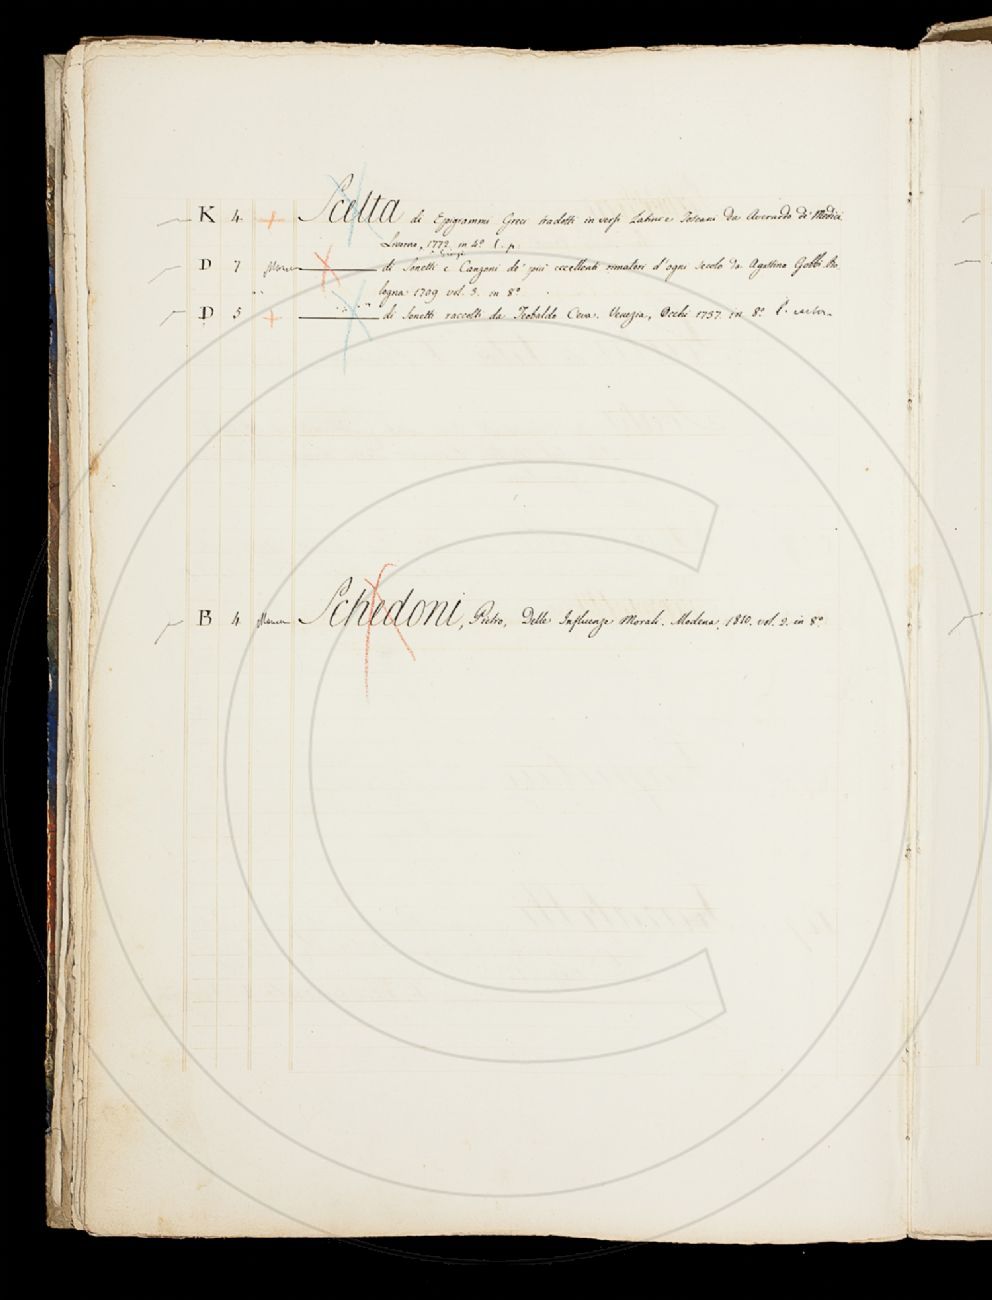 K 4 Scelta di Epigrammi Greci tradotti in versi Latini e Toscani da Averardo de' Medici
Livorno, 1772. in 4º
D 7 di Sonetti e Canzoni de' più eccellenti rimatori d'ogni secolo da Agostino Gobbi Bo
logna 1709 vol. 3. in 8º
D 5 di Sonetti raccolti da Teobaldo Ceva. Venezia, Occhi 1757. in 8º
B 4 Schedoni, Pietro, Delle Influenze Morali. Modena, 1810. vol. 2. in 8º